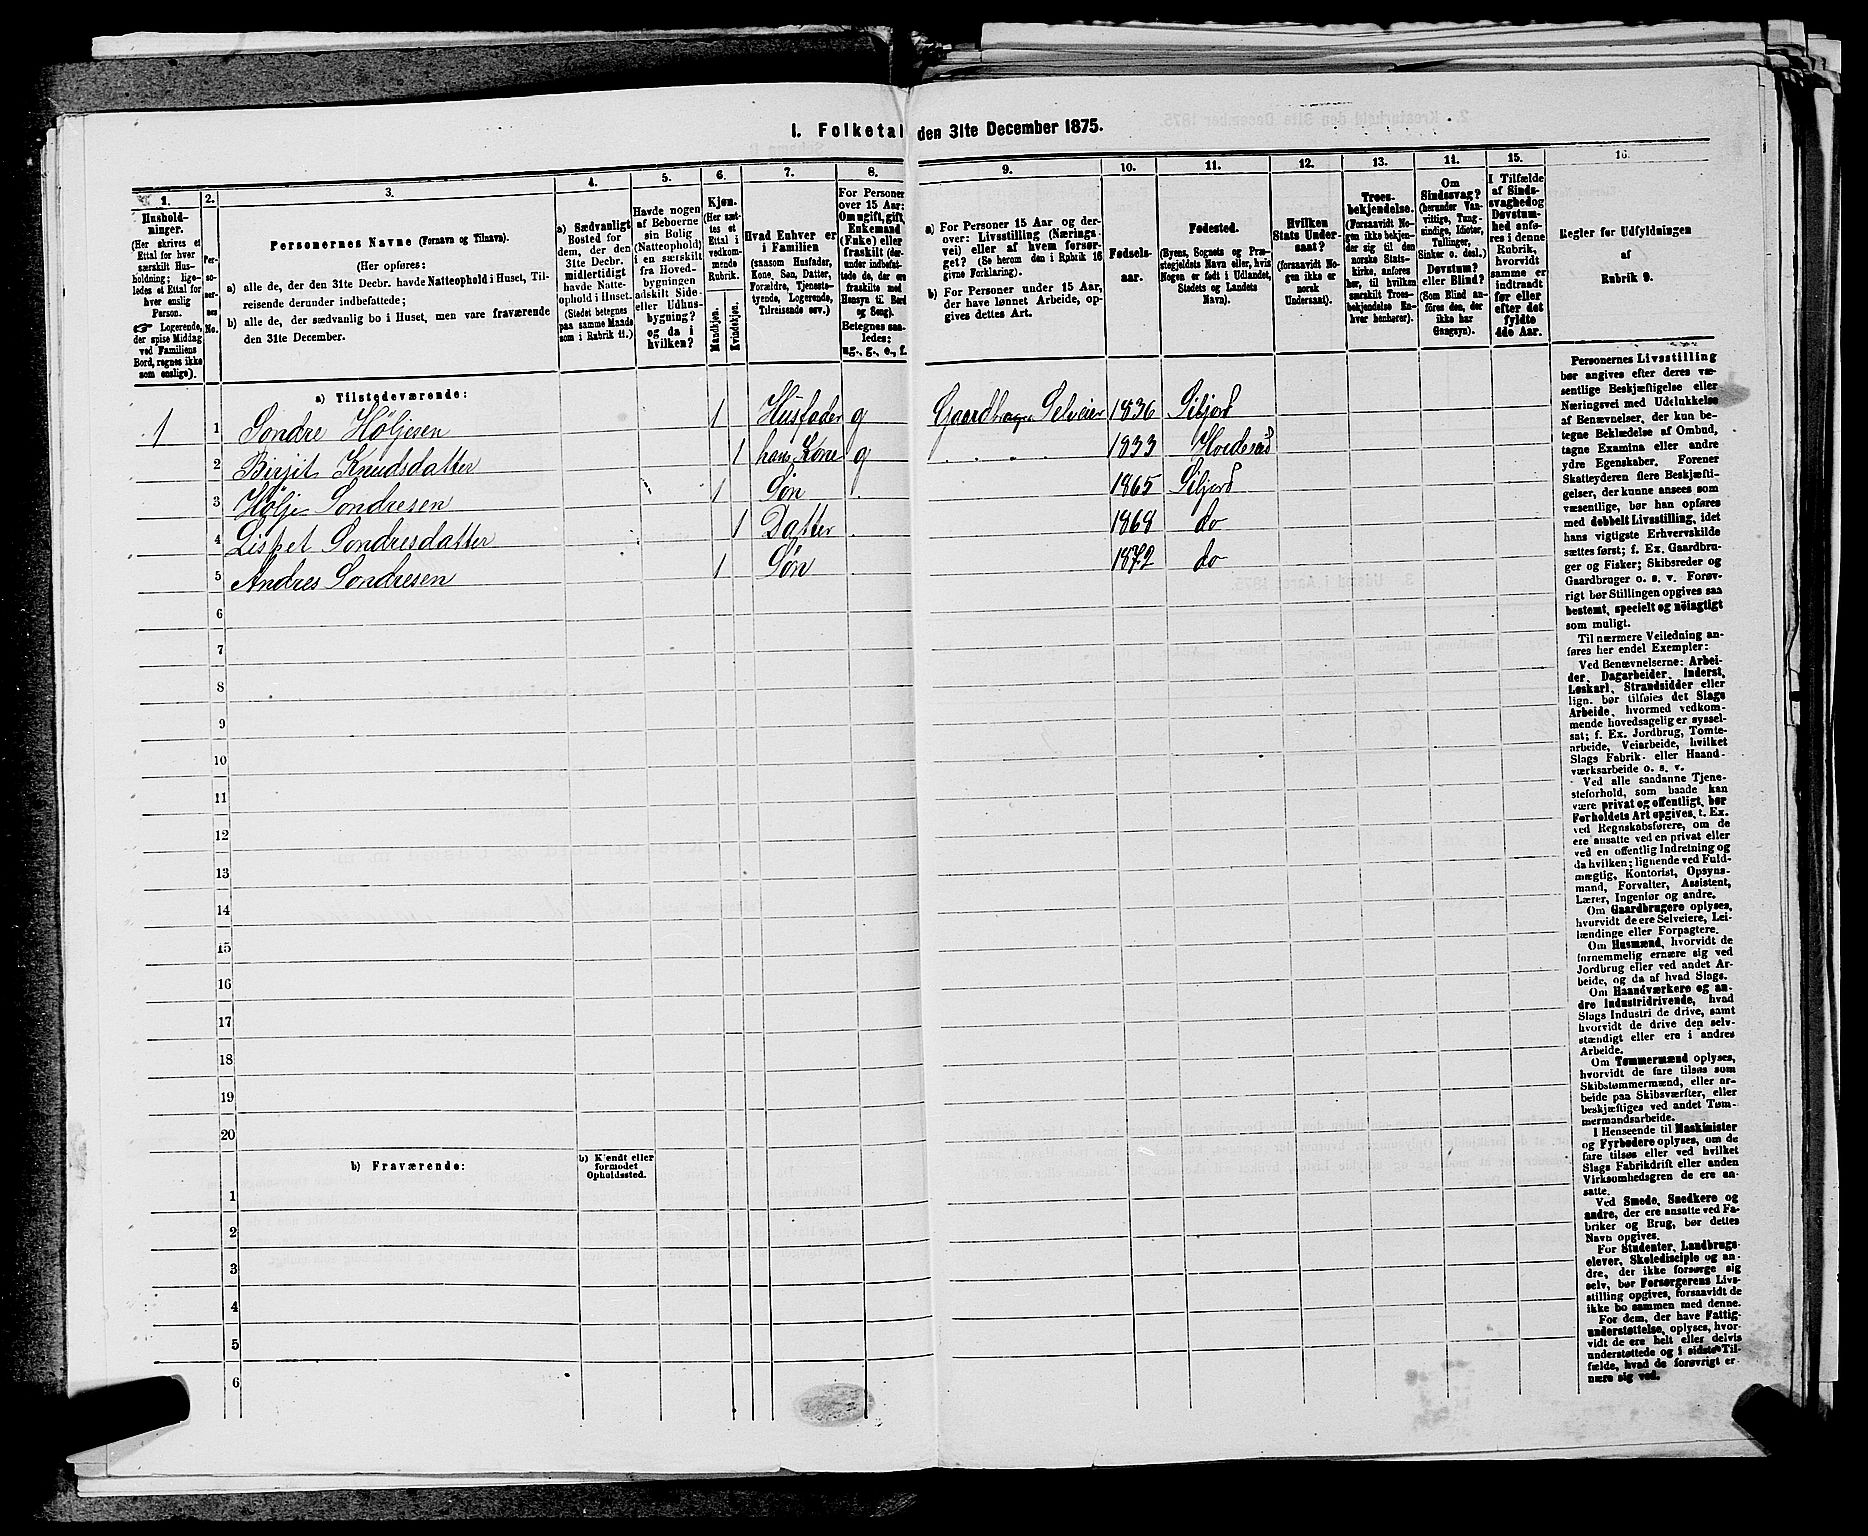 1. Folketal den 31te December 1875.
1. 2. 3. 4. 5. 6. 7. 8. 9. 10. 11. 12. 13. 14. 15. 16.
Hushold-
ninger.
(Her skrives et
Ettal for hver
særskilt Hus-
holdning; lige-
ledes et Ettal for
hver enslig
Person.
☞ Logerende,
der spise Middag
ved Familiens
Bord, regnes ikke
som enslige).
Per-
so-
ner-
nes
No.
Personernes Navne (Fornavn og Tilnavn).
(Her opføres:
a) alle de, der den 31te Decbr. havde Natteophold i Huset, Til-
reisende derunder indbefattede;
b) alle de, der sædvanlig bo i Huset, men vare fraværende
den 31te December.
a) Sædvanligt
Bosted for
dem, der den
31te Decbr.
midlertidigt
havde Natte-
ophold i Huset.
(Stedet betegnes
paa samme Maade
som i Rubrik 11.)
Havde nogen
af Beboerne
sin Bolig
(Natteophold)
i en særskilt
fra Hoved-
bygningen
adskilt Side-
eller Udhus-
bygning?
og da i
hvilken?
Kjøn.
(Her sæt-
tes et
Ettal i
vedkom-
mende
Rubrik.
Mandkjøn.
Kvindekjøn.
Hvad Enhver er
i Familien
(saasom Husfader,
Kone, Søn, Datter,
Forældre, Tjeneste-
tyende, Logerende,
Tilreisende osv.)
For Personer
over 15 Aar:
Om ugift, gift,
Enkemand
(Enke) eller
fraskilt (der-
under indbefat-
tede de, der ere
fraskilte med
Hensyn til Bord
og Seng).
Betegnes saa-
ledes:
ug., g., e., f.
a) For Personer 15 Aar og der-
over: Livsstilling (Nærings-
vei) eller af hvem forsør-
get? (Se herom den i Rubrik 16
givne Forklaring).
b) For Personer under 15 Aar,
der have lønnet Arbeide, op-
gives dettes Art.
Fødsels-
aar.
Fødested.
(Byens, Sognets og Præ-
stegjeldets Navn eller, hvis
Nogen er født i Udlandet,
Stedets og Landets
Navn).
Hvilken
Stats Under-
saat?
(forsaavidt No-
gen ikke er
norsk
Undersaat).
Troes-
bekjendelse.
(Forsaavidt No-
gen ikke bekjen-
der sig til den
norske Stats-
kirke, anføres
her, til hvilken
særskilt Troes-
bekjendelse En-
hver henhører).
Om
Sindssvag?
(herunder Van-
vittige, Tung-
sindige, Idioter,
Tullinger,
Sinker o. desl.)
Døvstum?
eller Blind?
(Som Blind an-
føres den, der
ikke har
Gangsyn).
I Tilfælde
af Sinds-
svaghed og
Døvstum-
hed anfø-
res i denne
Rubrik,
hvorvidt
samme er
indtraadt
før eller
efter det
fyldte
4de Aar.
Regler for Udfyldningen
af
Rubrik 9.
a) Tilstedeværende:
1 1 Søndre Høljesen 1 Husfader g Gaardbruger Selveier 1836 Siljord
2 Birjit Knudsdatter 1 hans Kone g 1833 Hvideseid
3 Hølje Søndresen 1 Søn 1865 Siljord
4 Lispet Søndresdatter 1 Datter 1868 do
5 Andres Søndresen 1 Søn 1872 do
6
7
8
9
10
11
12
13
14
15
16
17
18
19
20
b) Fraværende:
b) Kjendt eller
formodet
Opholdssted.
1
2
3
4
5
6
Personernes Livsstilling
bør angives efter deres væ-
sentlige Beskjæftigelse eller
Næringsvei med Udelukkelse
af Benævnelser, der kun be-
tegne Beklædelse af Ombud,
tagne Examina eller andre
ydre Egenskaber. Forener
Skatteyderen flere Beskjæfti-
gelser, der kunne ansees som
væsentlige, bør han opføres
med dobbelt Livsstilling, idet
hans vigtigste Erhvervskilde
sættes først; f. Ex. Gaardbru-
ger og Fisker; Skibsreder og
Gaardbruger o. s. v. Forøv-
rigt bør Stillingen opgives saa
bestemt, specielt og nøiagtigt
som muligt.
Til nærmere Veiledning an-
føres her endel Exempler:
Ved Benævnelserne: Arbei-
der, Dagarbeider, Inderst,
Løskarl, Strandsidder eller
lign. bør tilføies det Slags
Arbeide, hvormed vedkom-
mende hovedsagelig er syssel-
sat; f. Ex. Jordbrug, Tomte-
arbeide, Veiarbeide, hvilket
Slags Fabrik- eller Haand-
værksarbeide o. s. v.
Ved alle saadanne Tjene-
steforhold, som baade kan
være privat og offentligt, bør
Forholdets Art opgives, t. Ex.
ved Regnskabsførere, om de
ere ansatte ved en privat eller
ved en offentlig Indretning og
da hvilken; lignende ved Fuld-
mægtig, Kontorist, Opsyns-
mand, Forvalter, Assistent,
Lærer, Ingeniør og andre.
Om Gaardbrugere oplyses,
hvorvidt de ere Selveiere, Lei-
lændinge eller Forpagtere.
Om Husmænd, hvorvidt de
fornemmelig ernære sig ved
Jordbrug eller ved andet Ar-
beide, og da af hvad Slags.
Om Haandværkere og an-
dre Industridrivende, hvad
Slags Industri de drive, samt
hvorvidt de drive den selv-
stændigt eller ere i andres
Arbeide.
Om Tømmermænd oplyses,
hvorvidt de fare tilsøs som
Skibstømmermænd, eller ar-
beide paa Skibsværfter, eller
beskjæftiges ved andet Tøm-
mermandsarbeide.
I Henseende til Maskinister
og Fyrbødere oplyses, om de
fare tilsøs eller ved hvilket
Slags Fabrikdrift eller anden
Virksomhedsgren de ere an-
satte.
Ved Smede, Snedkere og
andre, der ere ansatte ved Fa-
briker og Brug, bør dettes
Navn opgives.
For Studenter, Landbrugs-
elever, Skoledisciple og an-
dre, der ikke forsørge sig
selv, bør Forsørgerens Livs-
stilling opgives, forsaavidt de
ikke bo sammen med denne.
For dem, der have Fattig-
understøttelse, oplyses, hvor-
vidt de ere helt eller delvis
understøttede og i sidste Til-
fælde, hvad de forøvrigt er-
nære sig ved.